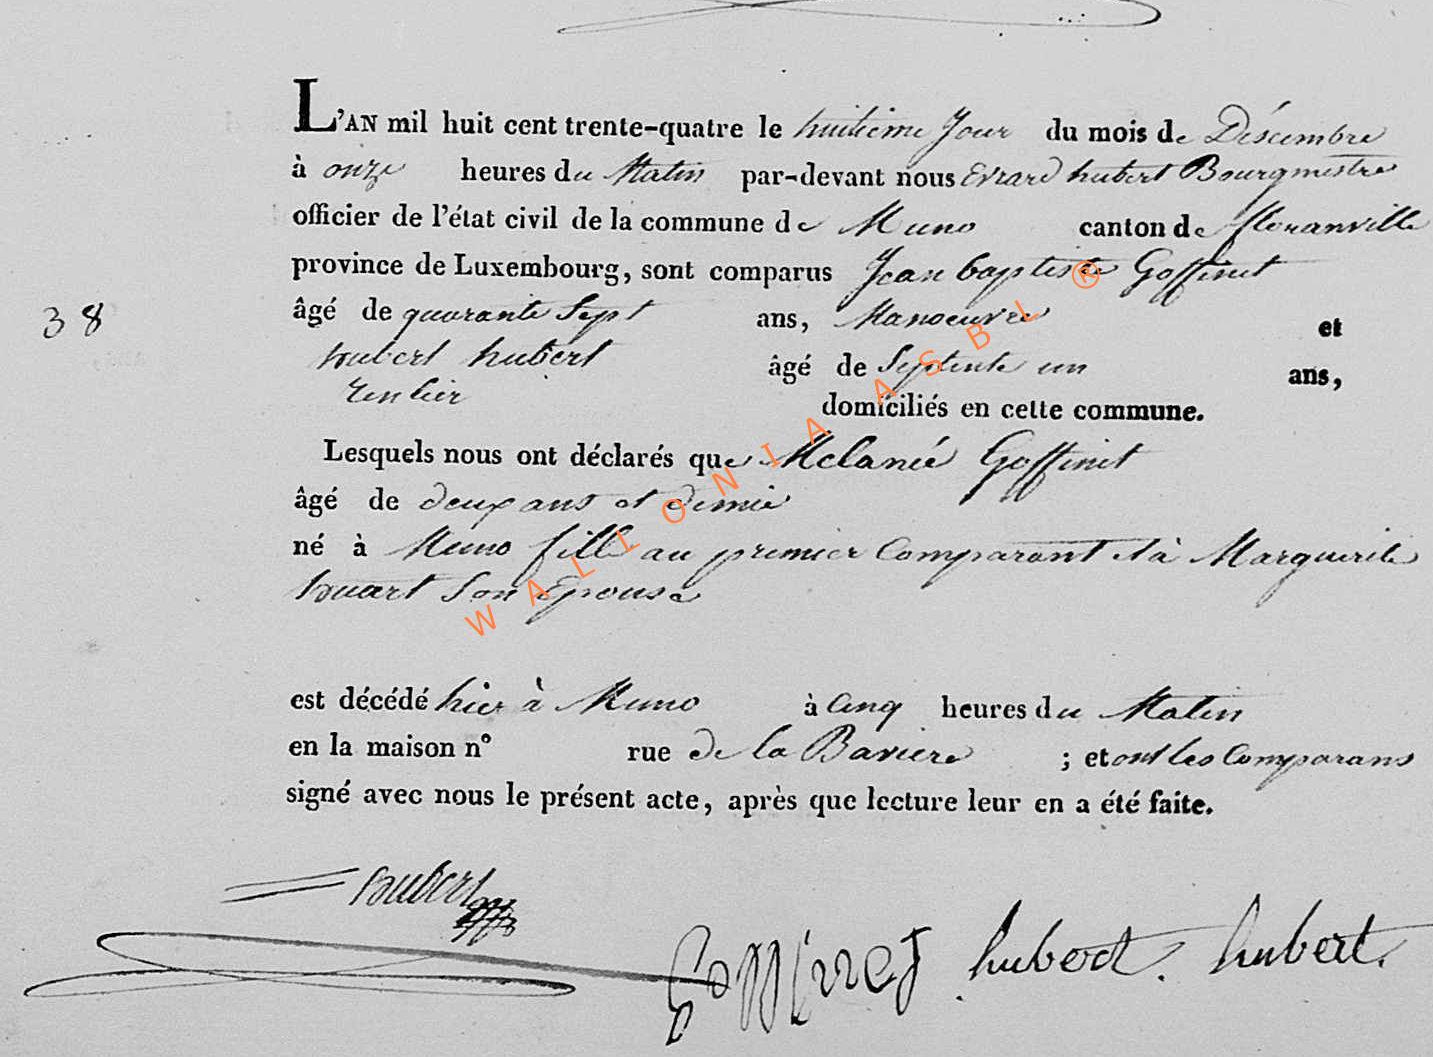 L'AN mil huit cent trente-quatre le huitieme Jour du mois de Désembre
à onze heures du Matin par-devant nous Evrard hubert Bourgmestre
officier de l'état civil de la commune de Muno canton de floranville
province de Luxembourg, sont comparus Jean baptiste Goffinet
38
âgé de quarante Sept ans, Manoeuvre et
hubert hubert âgé de Septente un ans,
Rentier domiciliés en cette commune.
Lesquels nous ont déclarés que Melanié Goffinet
âgé de deux ans et demie
né à Muno fille au premier Comparant et à Marguerite
huart Son Epouse
est décédé hier à Muno à Cinq heures du Matin
en la maison n° rue de la Baviere ; et ont les Comparans
signé avec nous le présent acte, après que lecture leur en a été faite.
hubert
Goffinet hubert. hubert.
WALLONIA ASBL ®